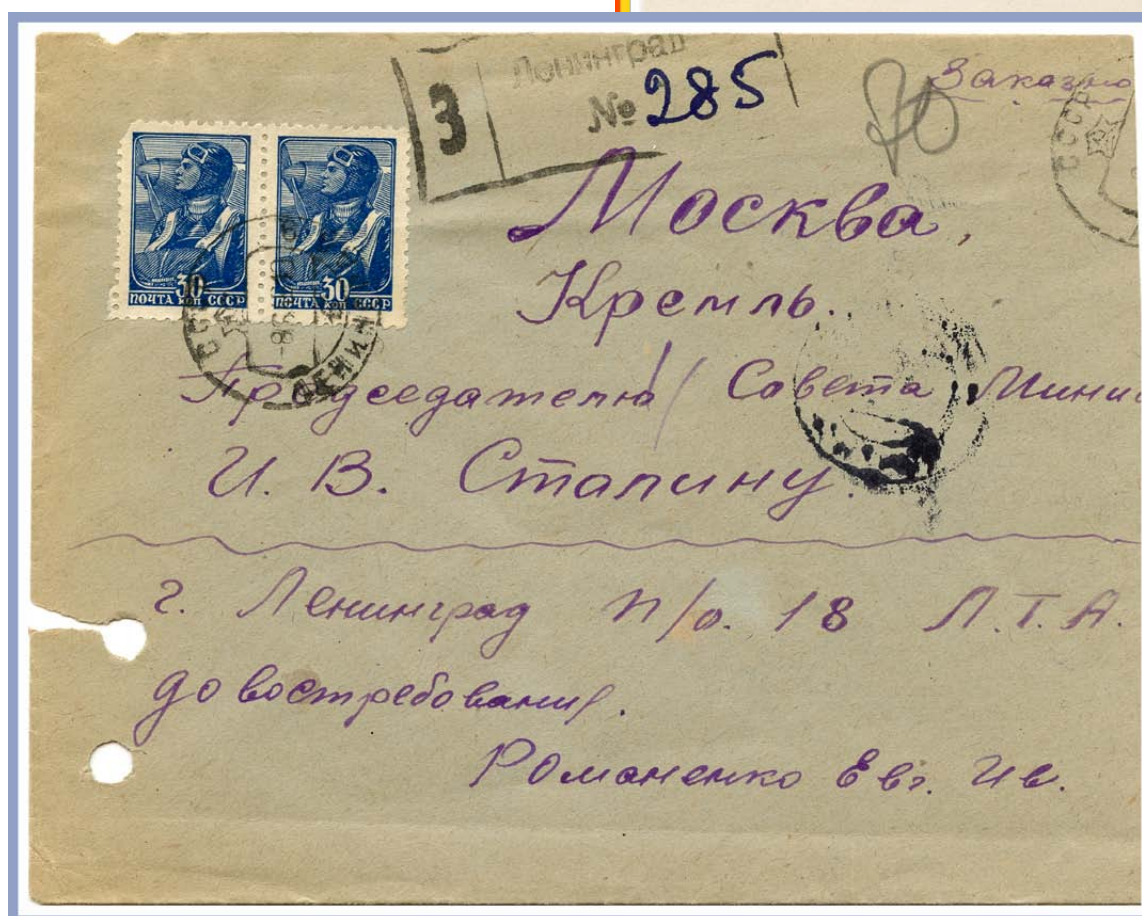 З
Ленинград
№ 285
Заказно
СССР
30 30
ПОЧТА КОП СССР ПОЧТА КОП СССР
Москва,
Кремль.
Председателю / Совета Мини
И. В. Сталину.
г. Ленинград п/о. 18 Л.Т.А.
до востребования.
Романенко Евг. Ив.